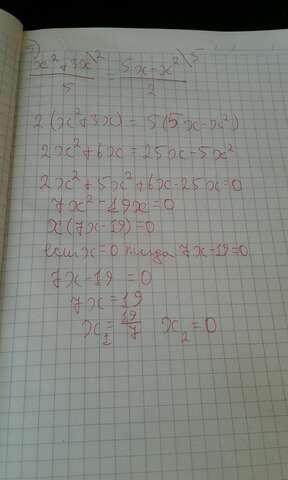 x²+3x\² / 5 = 5x-x²\⁵ / 2
2(x²+3x) = 5(5x-x²)
2x²+6x=25x-5x²
2x²+5x²+6x-25x=0
7x²-19x=0
x(7x-19)=0
если x=0 тогда 7x-19=0
7x-19=0
7x=19
x₁=19/7 x₂=0